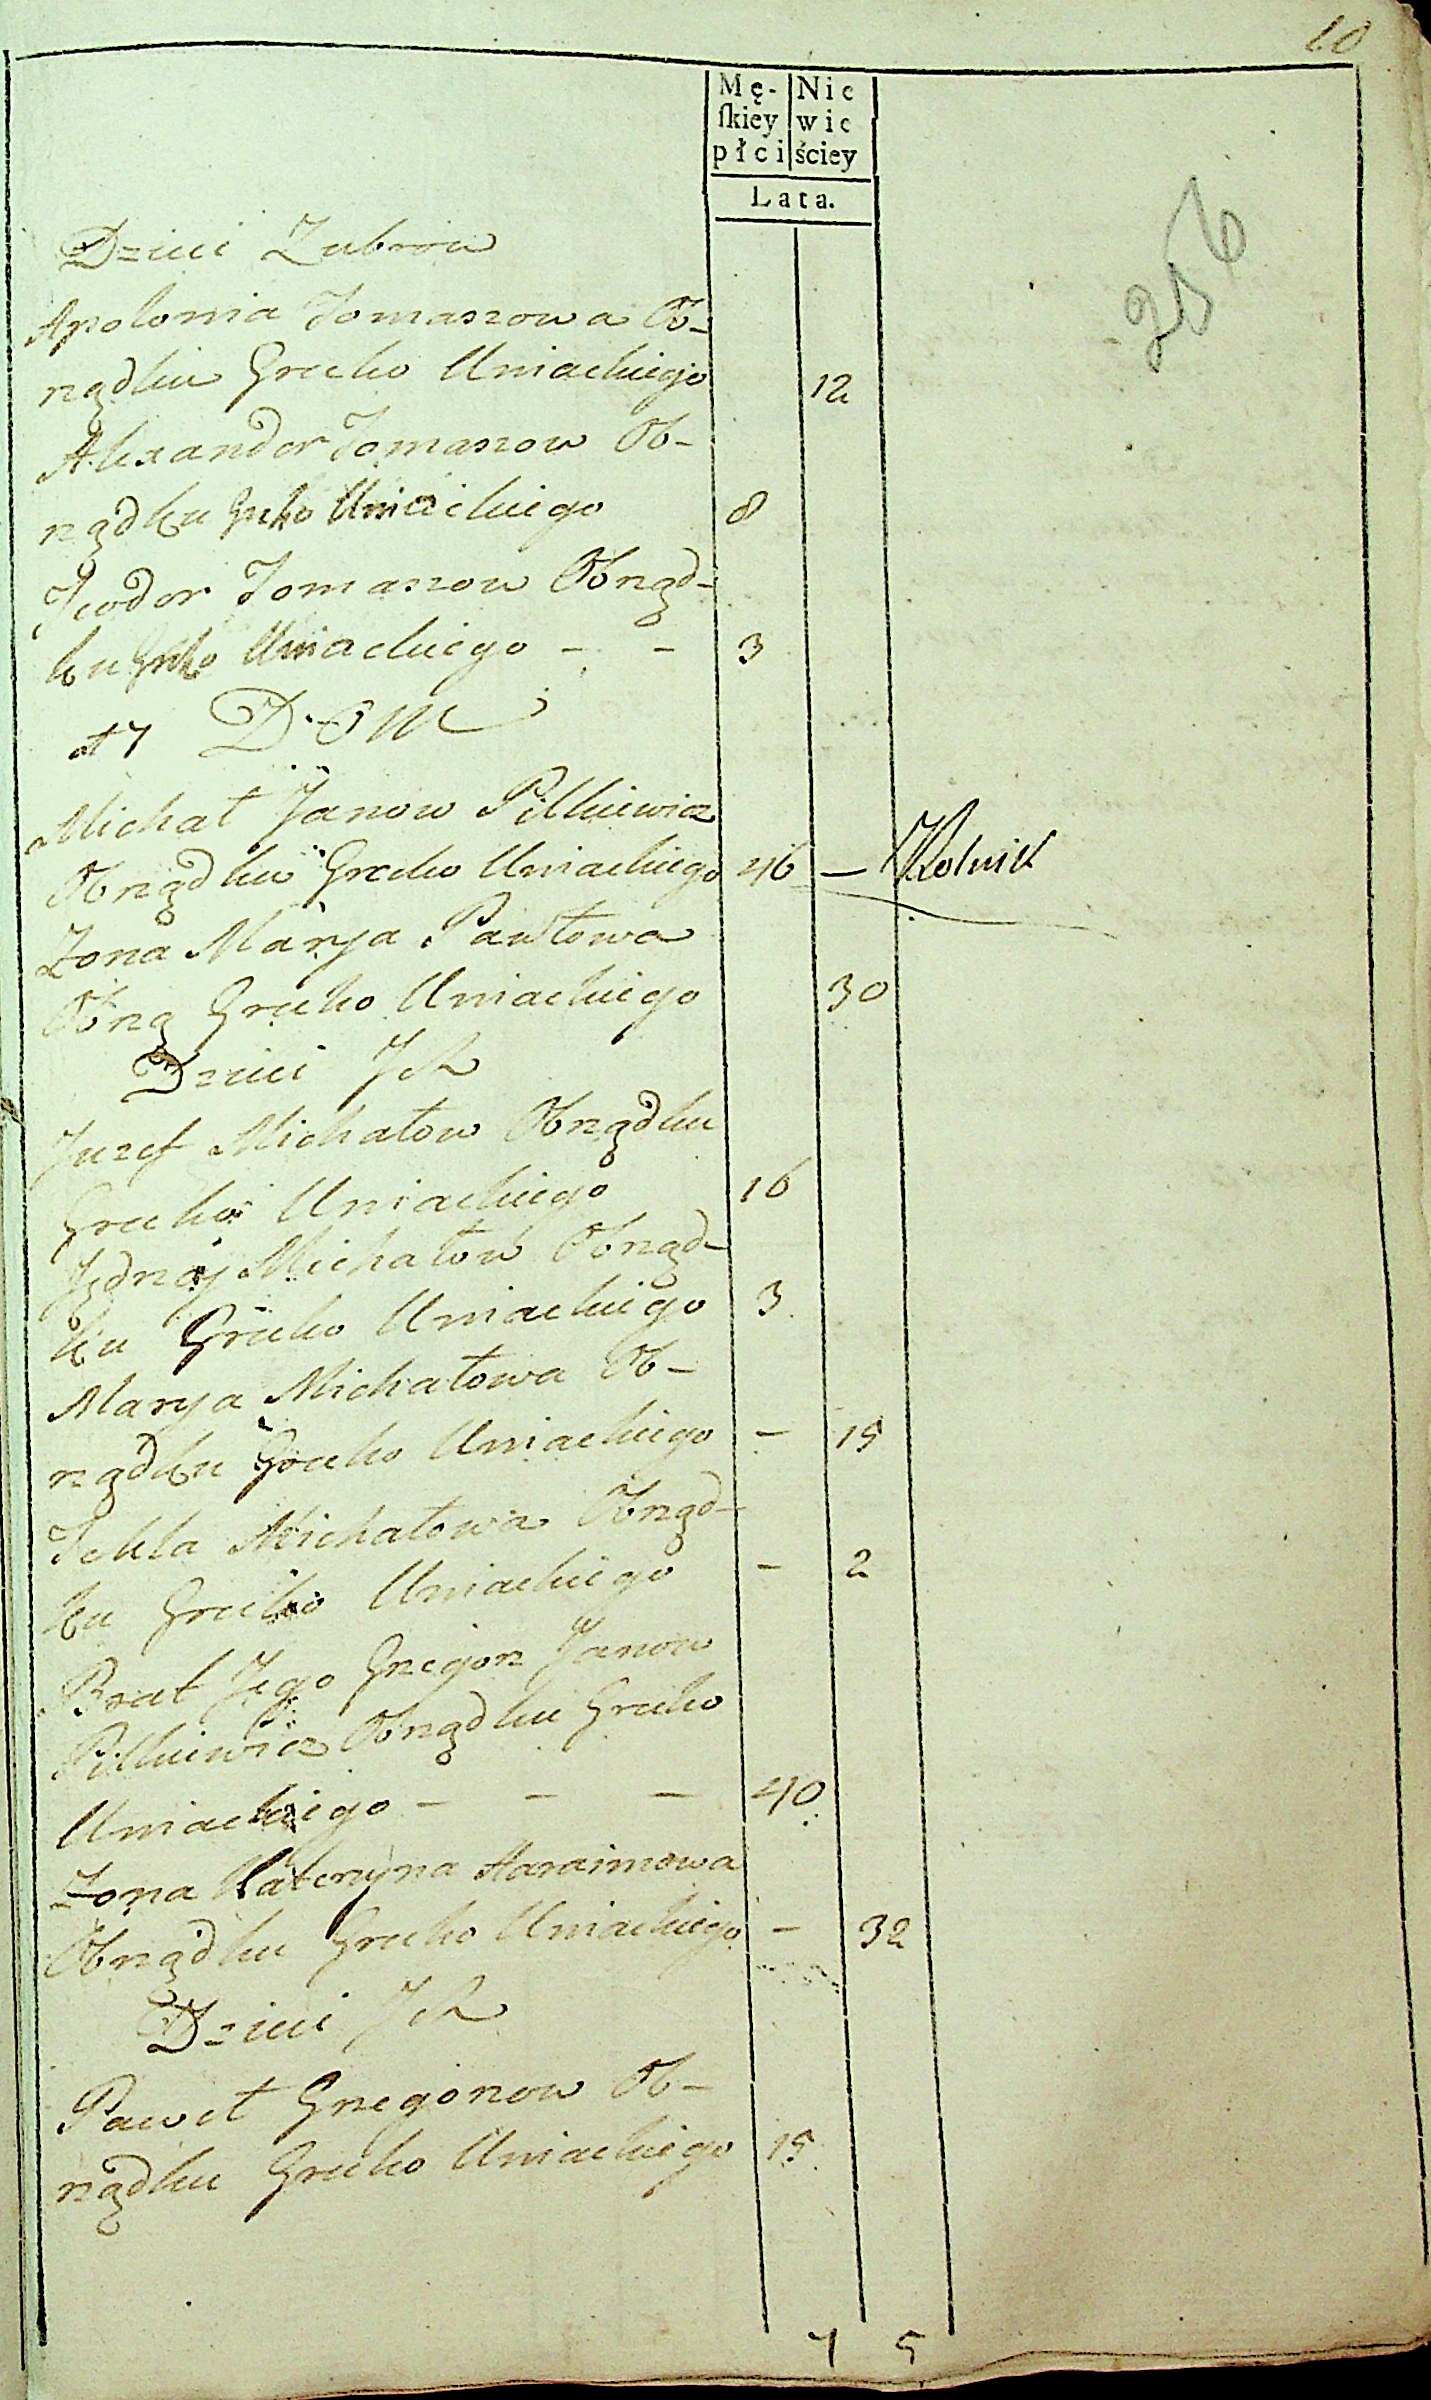 10
Mę- Nie
ſkiey wie
płci ściey
Lata.
256
Dzieci Zubrow
Apolonia Tomaszowa Ob-
rządku Greeko Uniackiego 12
Alexander Tomaszow Ob-
rządku Greko Uniackiego 8
Teodor Tomaszow Obrząd-
ku Greko Uniackiego - - 3
47 DOM
Michał Janow Pilkiewicz
Obrządku Grecko Uniackiego 46 — Rolnik
Zona Marya Pawłowa
Obrzą Grecko Uniackiego 30
Dzieci Ich
Juzef Michałow Obrządku
Grecko Uniackiego 16
Jędrzey Michałow Obrząd-
ku Grecko Uniackiego 3
Marya Michałowa Ob-
rządku Grecko Uniackiego - 15
Tekla Michałowa Obrząd-
ku Grecko Uniackiego - 2
Brat Jego Grzegorz Janow
Pilkiewicz Obrządku Grecko
Uniackiego - - - 40
Zona Kateryna Haraimowa
Obrządku Grecko Uniackiego - 32
Dzieci Ich
Paweł Gregorzow Ob-
rządku Grecko Uniackiego 15
7 5